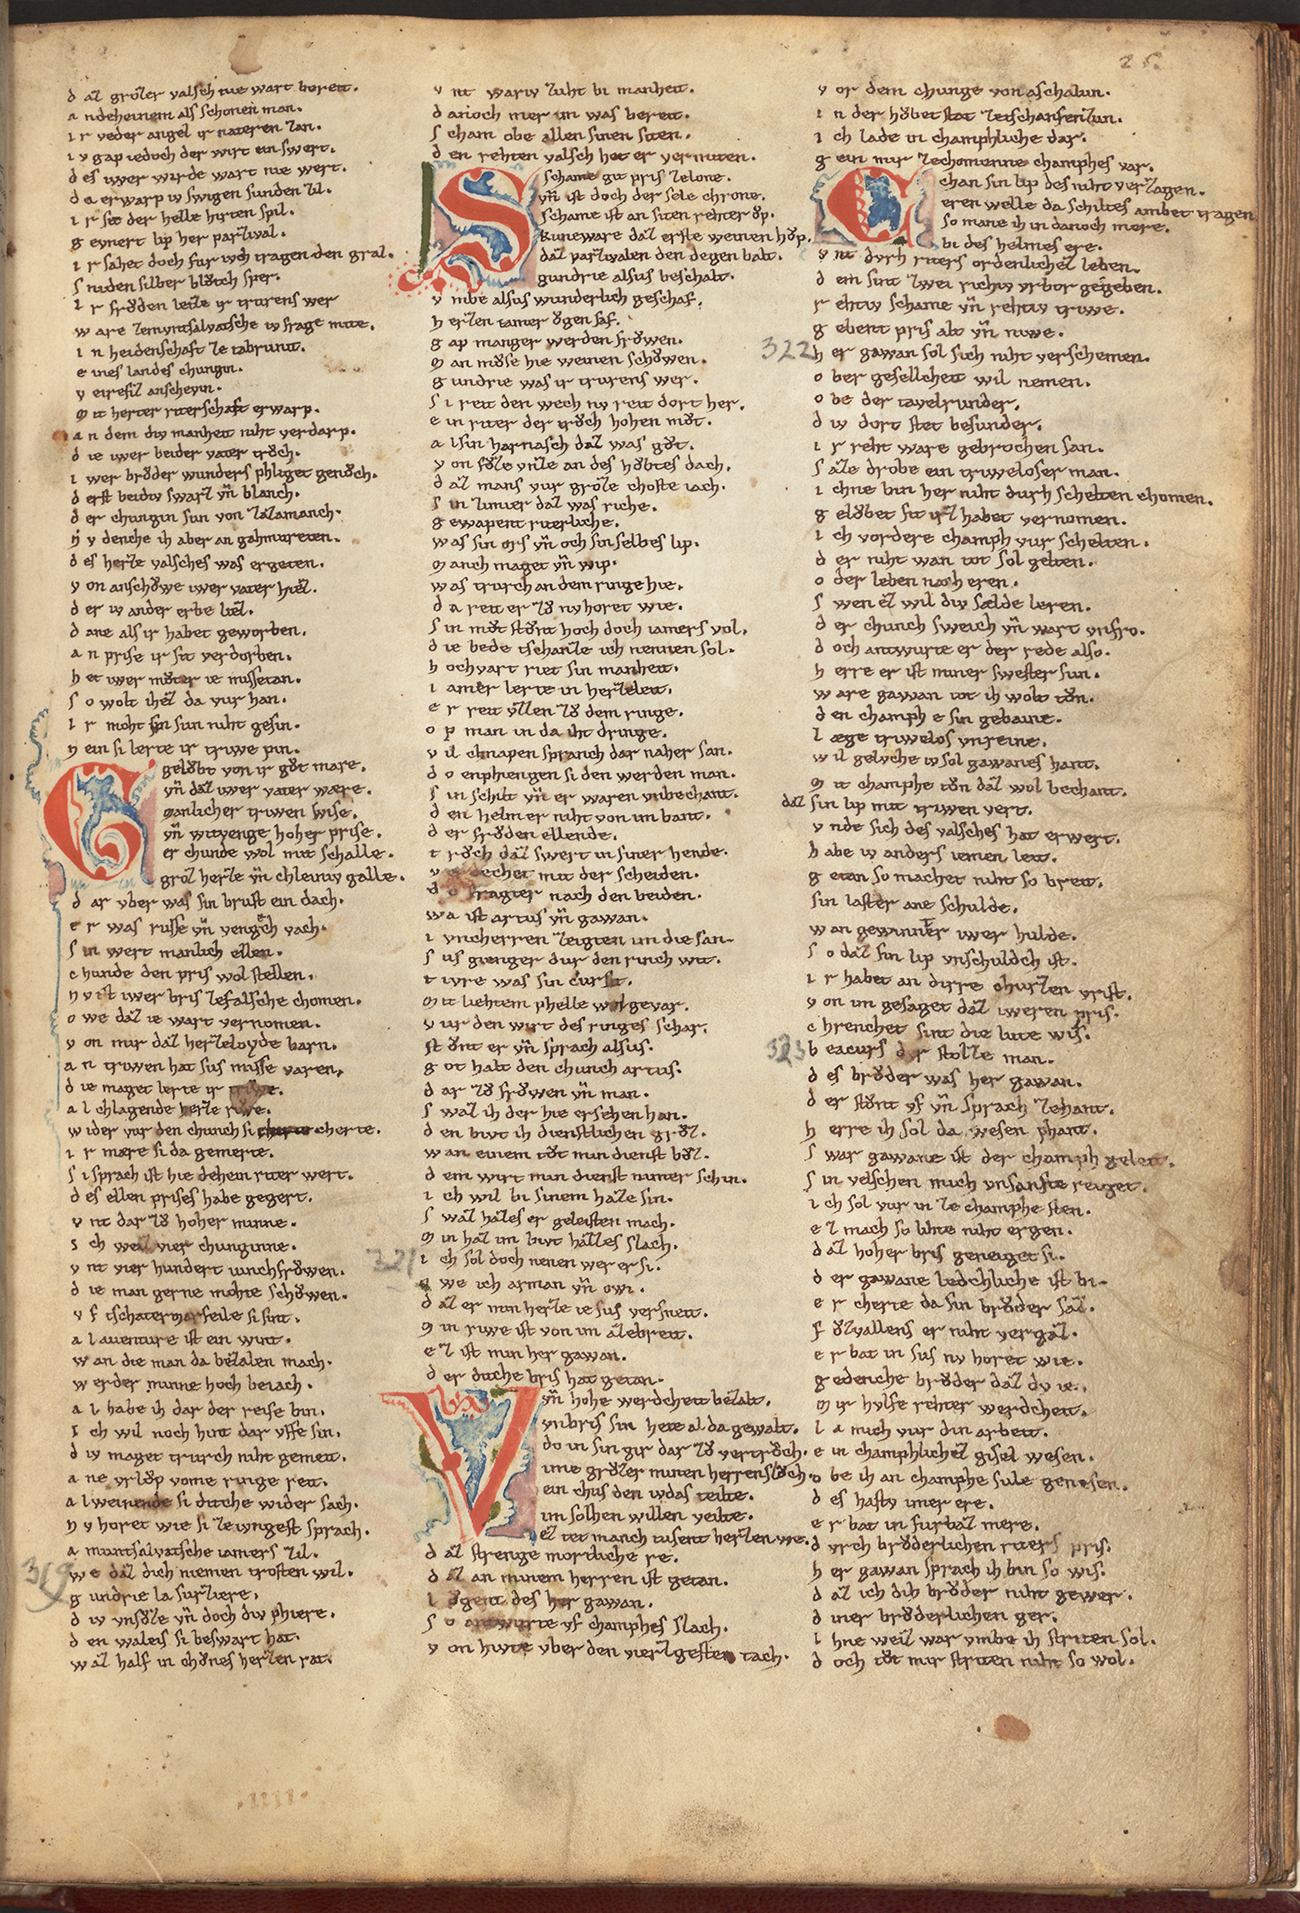 25
d aͤz grozer valsch nie wart bereit.
a n deheinem als schonen man.
i r veder angel ir nateren zan.
i v gap iedoch der wirt ein swert.
d es iwer wirde wart nie wert.
d a erwarp iv swigen sunden zil.
i r sit der helle hirten spil.
g evnert lip her parzival.
i r sahet doch fur iuch tragen den gral.
s niden silber blůtch sper.
i r frǒden leite ir trurens wer
w are zemvntsalvatsche iv frage mite.
i n heidenschaft ze tabrunit.
e ines landes chungin.
v eirefil anschevin.
m it herter riterschaft erwarp.
a n dem div manheit niht verdarp.
d ie iwer beider vater trǒch.
i wer brůder wunders phliget genǒch.
d erst beidiv swarz vn̄ blanch.
d er chungin sun von zazamanch.
n v denche ih aber an gahmureten.
d es herze valsches was ergeten.
v on anschǒwe iwer vater hiez.
d er iv ander erbe liez.
d ane als ir habet geworben.
a n prise ir sit verdorben.
h et iwer můter ie missetan.
s o wolt ihez da vur han.
i r moht sin sun niht gesin.
n ein si lerte ir triwe pin.
G gelǒbt von ir gůt mare.
vn̄ daz iwer vater wære.
manlicher triwen wise.
vn̄ witvenge hoher prise.
er chunde wol mit schalle.
groz herze vn̄ chleiniv galle.
d ar vber was sin brust ein dach.
e r was russe vn̄ vengech vach.
s in wert manlich ellen.
c hunde den pris wol stellen.
n v ist iwer bris zefalsche chomen.
o we daz ie wart vernomen.
v on mir daz herzeloyde barn.
a n triwen hat sus misse varen.
d ie maget lerte ir triwe.
a l chlagende herze riwe.
w ider vur den chunch si cherte.
i r mære si da gemerte.
s i sprach ist hie dehein riter wert.
d es ellen prises habe gegert.
v nt dar zů hoher minne.
i ch weiz vier chunginne.
v nt vier hundert iunchfrǒwen.
d ie man gerne mohte schǒwen.
v f tschatermarfeile si sint.
a l aventure ist ein wint.
w an die man da bezalen mach.
w erder minne hoch beiach.
a l habe ih dar der reise bin.
i ch wil noch hint dar vffe sin.
d iv maget trurch niht gemeit.
a ne vrlǒp vome ringe reit.
a l weinende si diche wider sach.
n v horet wie si zeivngest sprach.
a muntsalvatsche iamers zil.
319
w e daz dich niemen trosten wil.
g undrie la surziere.
d iv vnsůze vn̄ doch div phiere.
d en waleis si beswart hat.
w az half in chǒnes herzen rat.
v nt wariv zuht bi manheit.
d anoch mer im was bereit.
s cham obe allen sinen siten.
d en rehten valsch het er vermiten.
S schame git pris zelone.
vn̄ ist doch der sele chrone.
schame ist an siten rehter ǒp.
kuneware daz erste weinen hǒp.
daz parzivalen den degen balt.
gundrie alsus beschalt.
v mbe alsus wunderlich geschaf.
h erzen iamer ǒgen saf.
g ap manger werden frǒwen.
m an můse hie weinen schǒwen.
g undrie was ir trurens wer.
s i reit den wech nv reit dort her.
e in riter der trǒch hohen můt.
a l sin harnasch daz was gůt.
v on fůze vnze an des hǒbtes dach.
d az mans vur grǒze choste iach.
s in zimier daz was riche.
g ewapent riterliche.
was sin ors vn̄ och sin selbes lip.
m anch maget vn̄ wip.
was trurch an dem ringe hie.
d a reit er zǒ nv horet wie.
s in můt stůnt hoch doch iamers vol.
d ie bede tschanze ich nennen sol.
h ochvart riet sin manheit.
i amer lerte in herzeleit.
e r reit vzzen zů dem ringe.
o p man in da iht dringe.
v il chnapen spranch dar naher san.
d o enphiengen si den werden man.
s in schilt vn̄ er waren vnbechant.
d en helm er niht von im bant.
d er frǒden ellende.
t rǒch daz swert in siner hende.
v erdechet mit der scheiden.
d o fragter nach den beiden.
wa ist artus vn̄ gawan.
i vncherren zeigten im die san.
s us gienger dur den rinch wit.
t ivre was sin cursit.
m it liehtem phelle wolgevar.
v ur den wirt des ringes schar.
st ůnt er vn̄ sprach alsus.
g ot halt den chunch artus.
d ar zů frǒwen vn̄ man.
s waz ih der hie ersehen han.
d en bivt ih dienstlichen grůz.
w an einem tůt min dienst bůz.
d em wirt min dienst nimer schin.
i ch wil bi sinem haze sin.
s waz hazes er geleisten mach.
m in haz im bivt hazzes slach.
321
i ch sol doch nenen wer er si.
o we ich arman vn̄ owi.
d az er min herze ie sus versneit.
m in riwe ist von im ze breit.
e z ist min her gawan.
d er diche bris hat getan.
V vn̄ hohe werdcheit bezalt.
vnbris sin hete al da gewalt.
do in sin gir dar zů vertrǒch.
ime grůzer minen herren slǒch.
ein chus den ivdas teilte.
im solhen willen veilte.
ez tůt manch tusent herzen we.
d az strenge mortliche re.
d az an minem herren ist getan.
l ǒgent des her gawan.
s o antwurte vf champhes slach.
v on hivte vber den vierzgesten tach.
v or dem chunge von aschalun.
i n der hǒbet stat zetschanfenzun.
i ch lade in champhliche dar.
g ein mir zechomenne champhes var.
C chan sin lip des niht verzagen.
eren welle da schiltes ambet tragen
so mane ih in danoch mere.
bi des helmes ere.
v nt dvrh riters ordenlichez leben.
d em sint zwei richiv vrbor gegeben.
r ehtiv schame vn̄ rehtiv triwe.
g ebent pris alt vn̄ niwe.
322
h er gawan sol sich niht verschemen.
o ber gesellcheit wil nemen.
o be der tavelrunder.
d iv dort stet besunder.
i r reht ware gebrochen san.
s æze drobe ein triweloser man.
i chne bin her niht durh schelten chomen.
g elǒbet sit irz habet vernomen.
i ch vordere champh vur schelten.
d er niht wan tot sol gelten.
o der leben nach eren.
s wen ez wil div sælde leren.
d er chunch sweich vn̄ wart vnfro.
d och antwurte er der rede also.
h erre er ist miner swester sun.
w are gawan tot ih wolt tůn.
d en champh e sin gebaine.
l æge triwelos vnreine.
w il gelvche iv sol gawanes hant.
m it champhe tůn daz wol bechant.
daz sin lip mit triwen vert.
v nde sich des valsches hat erwert.
h abe iv anders iemen leit.
g etan so machet niht so breit.
sin laster ane schulde.
w an gewinner iwer hulde.
s o daz sin lip vnschuldch ist.
i r habet an dirre churzen vrist.
v on im gesaget daz iweren pris.
c hrenchet sint die lute wis.
323
b eacurs der stolze man.
d es brůder was her gawan.
d er stůnt vf vn̄ sprach zehant.
h erre ih sol da wesen phant.
s war gawane ist der champh geleit.
s in velschen mich vnsanfte reizet.
i ch sol vur in ze champhe sten.
e z mach so lihte niht ergen.
d az hoher bris geneiget si.
d er gawane ledchliche ist bi.
e r cherte da sin brůder saz.
f ůzvallens er niht vergaz.
e r bat in sus nv horet wie.
g edenche brůder daz dv ie.
m ir hvlfe rehter werdcheit.
l a mich vur din arbeit.
e in champhlichez gisel wesen.
o be ih an champhe sule genesen.
d es hastv imer ere.
e r bat in furbaz mere.
d vrch brůderlichen riters pris.
h er gawan sprach ih bin so wis.
d az ich dih brůder niht gewer.
d iner brůderlichen ger.
i hne weiz war vmbe ih striten sol.
d och tůt mir striten niht so wol.
.IIII.